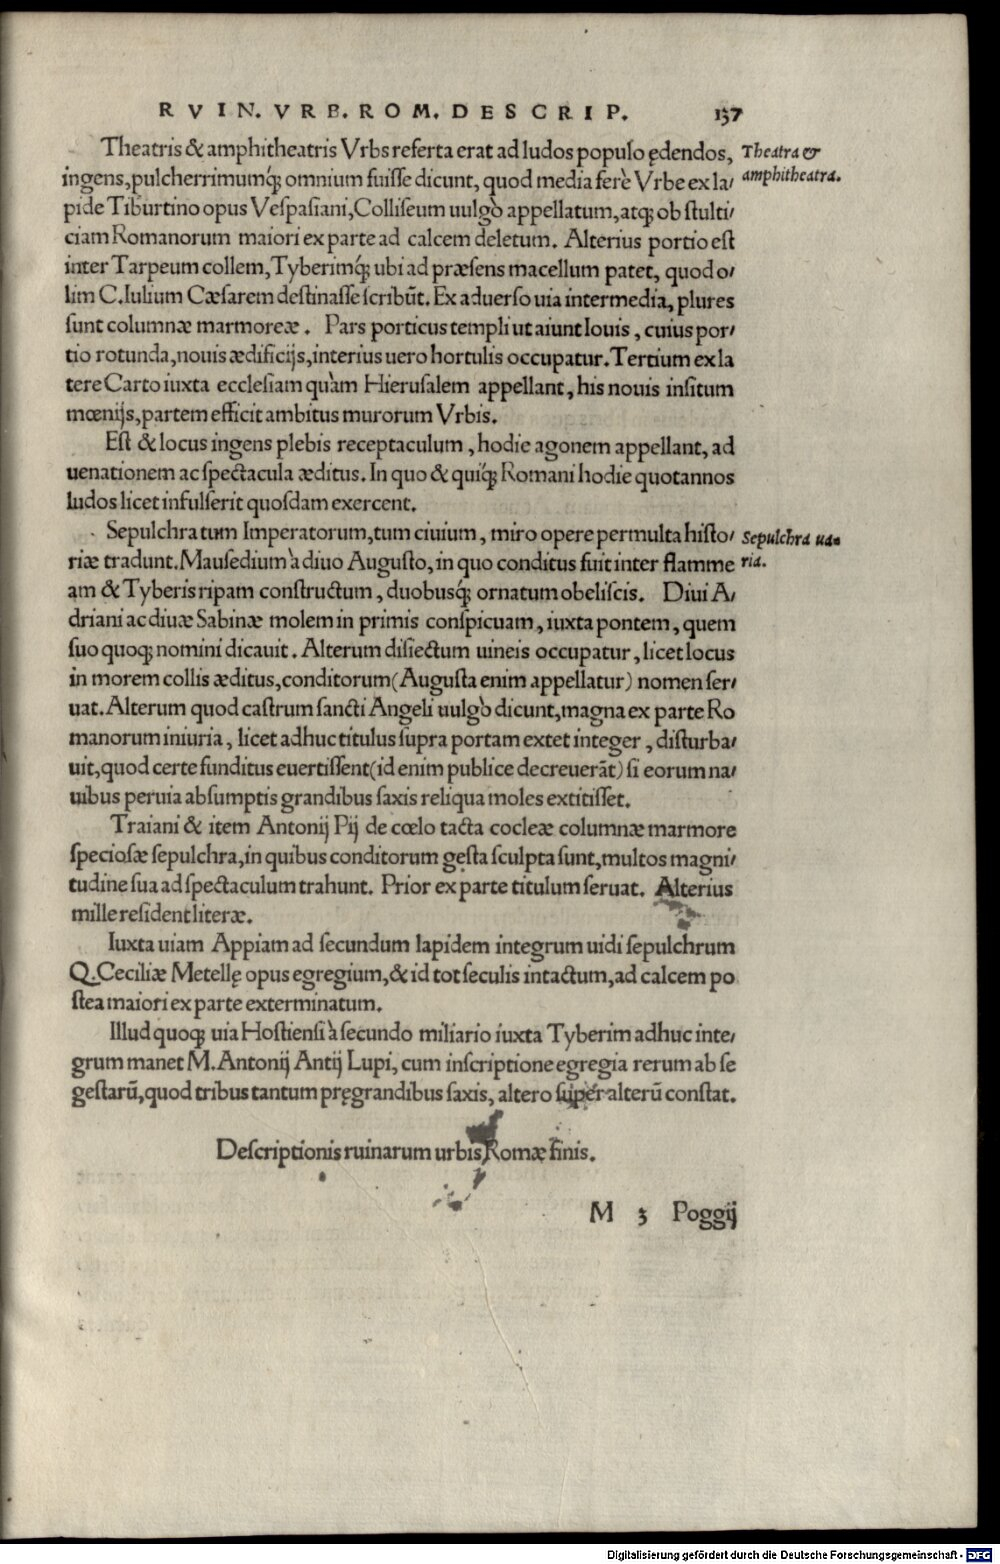 RVIN. VRB. ROM. DESCRIP. 137
Theatris & amphitheatris Vrbs referta erat ad ludos populo ędendos,
Theatra &
ingens, pulcherrimumq́; omnium fuisse dicunt, quod media ferè Vrbe ex la/
amphitheatra.
pide Tiburtino opus Vespasiani, Colliseum uulgò appellatum, atq; ob stulti/
ciam Romanorum maiori ex parte ad calcem deletum. Alterius portio est
inter Tarpeum collem, Tyberimq́; ubi ad præsens macellum patet, quod o/
lim C. Iulium Cæsarem destinasse scribũt. Ex aduerso uia intermedia, plures
sunt columnæ marmoreæ. Pars porticus templi ut aiunt Iouis, cuius por/
tio rotunda, nouis ædificijs, interius uero hortulis occupatur. Tertium ex la
tere Carto iuxta ecclesiam quàm Hierusalem appellant, his nouis insitum
mœnijs, partem efficit ambitus murorum Vrbis.
Est & locus ingens plebis receptaculum, hodie agonem appellant, ad
uenationem ac spectacula æditus. In quo & quiq́; Romani hodie quotannos
ludos licet infulserit quosdam exercent.
Sepulchra tum Imperatorum, tum ciuium, miro opere permulta histo/
Sepulchra ua=
riæ tradunt. Mausedium à diuo Augusto, in quo conditus fuit inter flamme
ria.
am & Tyberis ripam constructum, duobusq́; ornatum obeliscis. Diui A/
driani ac diuæ Sabinæ molem in primis conspicuam, iuxta pontem, quem
suo quoq; nomini dicauit. Alterum disiectum uineis occupatur, licet locus
in morem collis æditus, conditorum (Augusta enim appellatur) nomen ser/
uat. Alterum quod castrum sancti Angeli uulgò dicunt, magna ex parte Ro
manorum iniuria, licet adhuc titulus supra portam extet integer, disturba/
uit, quod certe funditus euertissent (id enim publice decreuerãt) si eorum na/
uibus peruia absumptis grandibus saxis reliqua moles extitisset.
Traiani & item Antonij Pij de cœlo tacta cocleæ columnæ marmore
speciosæ sepulchra, in quibus conditorum gesta sculpta sunt, multos magni/
tudine sua ad spectaculum trahunt. Prior ex parte titulum seruat. Alterius
mille resident literæ.
Iuxta uiam Appiam ad secundum lapidem integrum uidi sepulchrum
Q. Ceciliæ Metellę opus egregium, & id tot seculis intactum, ad calcem po
stea maiori ex parte exterminatum.
Illud quoq; uia Hostiensi à secundo miliario iuxta Tyberim adhuc inte/
grum manet M. Antonij Antij Lupi, cum inscriptione egregia rerum ab se
gestarũ, quod tribus tantum pręgrandibus saxis, altero super alterũ constat.
Descriptionis ruinarum urbis Romæ finis.
M 3 Poggij
Digitalisierung gefördert durch die Deutsche Forschungsgemeinschaft - DFG